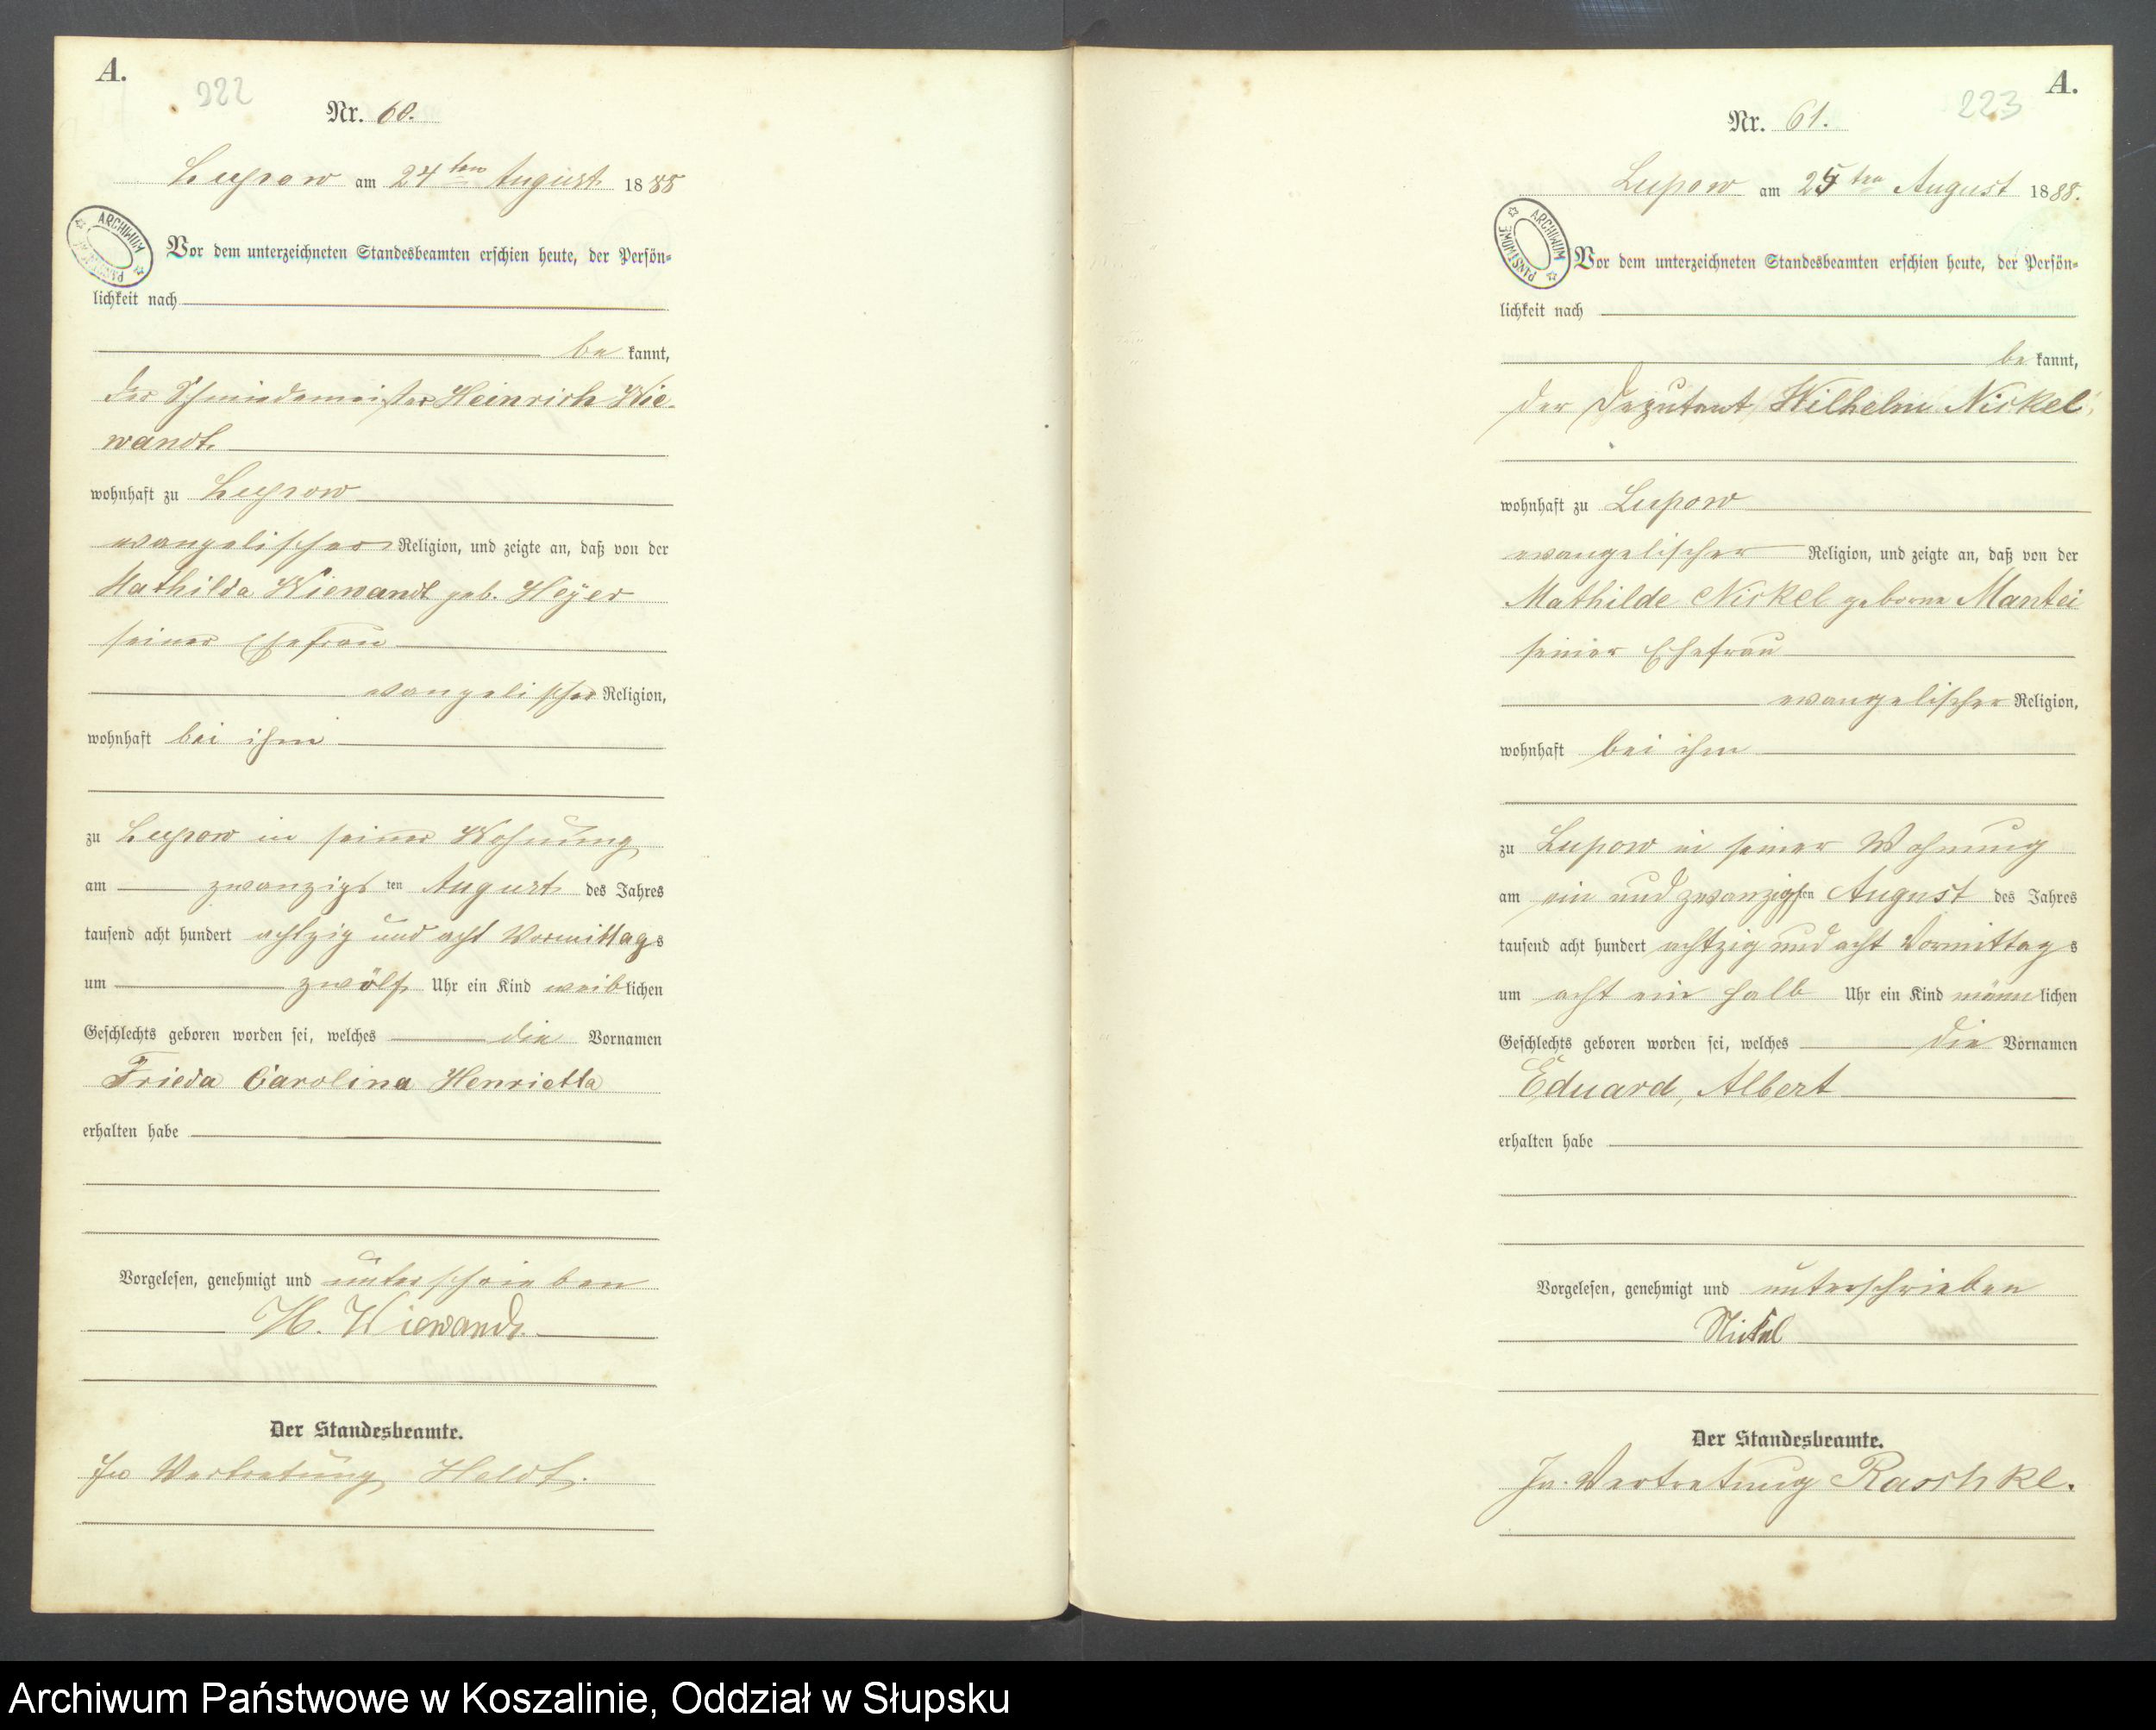 A.
222
Nr. 60.
Lupow am 24ten August 1888
ARCHIWUM PAŃSTWOWE
Vor dem unterzeichneten Standesbeamten erschien heute, der Persön=
lichkeit nach
be kannt,
der Schmiedemeister Heinrich Wie-
wandt
wohnhaft zu Lupow
evangelischer Religion, und zeigte an, daß von der
Mathilda Wiewandt geb. Heyer
seiner Ehefrau
evangelischer Religion,
wohnhaft bei ihm
zu Lupow in seiner Wohnung
am zwanzigsten August des Jahres
tausend acht hundert achtzig und acht Vormittags
um zwölf Uhr ein Kind weiblichen
Geschlechts geboren worden sei, welches die Vornamen
Frieda Carolina Henrietta
erhalten habe
Vorgelesen, genehmigt und unterschrieben
H. Wiewandt.
Der Standesbeamte.
In Vertretung Heldt.
A.
223
Nr. 61.
Lupow am 25ten August 1888.
ARCHIWUM PAŃSTWOWE
Vor dem unterzeichneten Standesbeamten erschien heute, der Persön=
lichkeit nach
be kannt,
der Deputant Wilhelm Nickel,
wohnhaft zu Lupow
evangelischer Religion, und zeigte an, daß von der
Mathilde Nickel geborne Mantei
seiner Ehefrau
evangelischer Religion,
wohnhaft bei ihm
zu Lupow in seiner Wohnung
am ein und zwanzigsten August des Jahres
tausend acht hundert achtzig und acht Vormittags
um acht ein halb Uhr ein Kind männlichen
Geschlechts geboren worden sei, welches die Vornamen
Eduard, Albert
erhalten habe
Vorgelesen, genehmigt und unterschrieben
Nickel
Der Standesbeamte.
In Vertretung Raschke.
Archiwum Państwowe w Koszalinie, Oddział w Słupsku